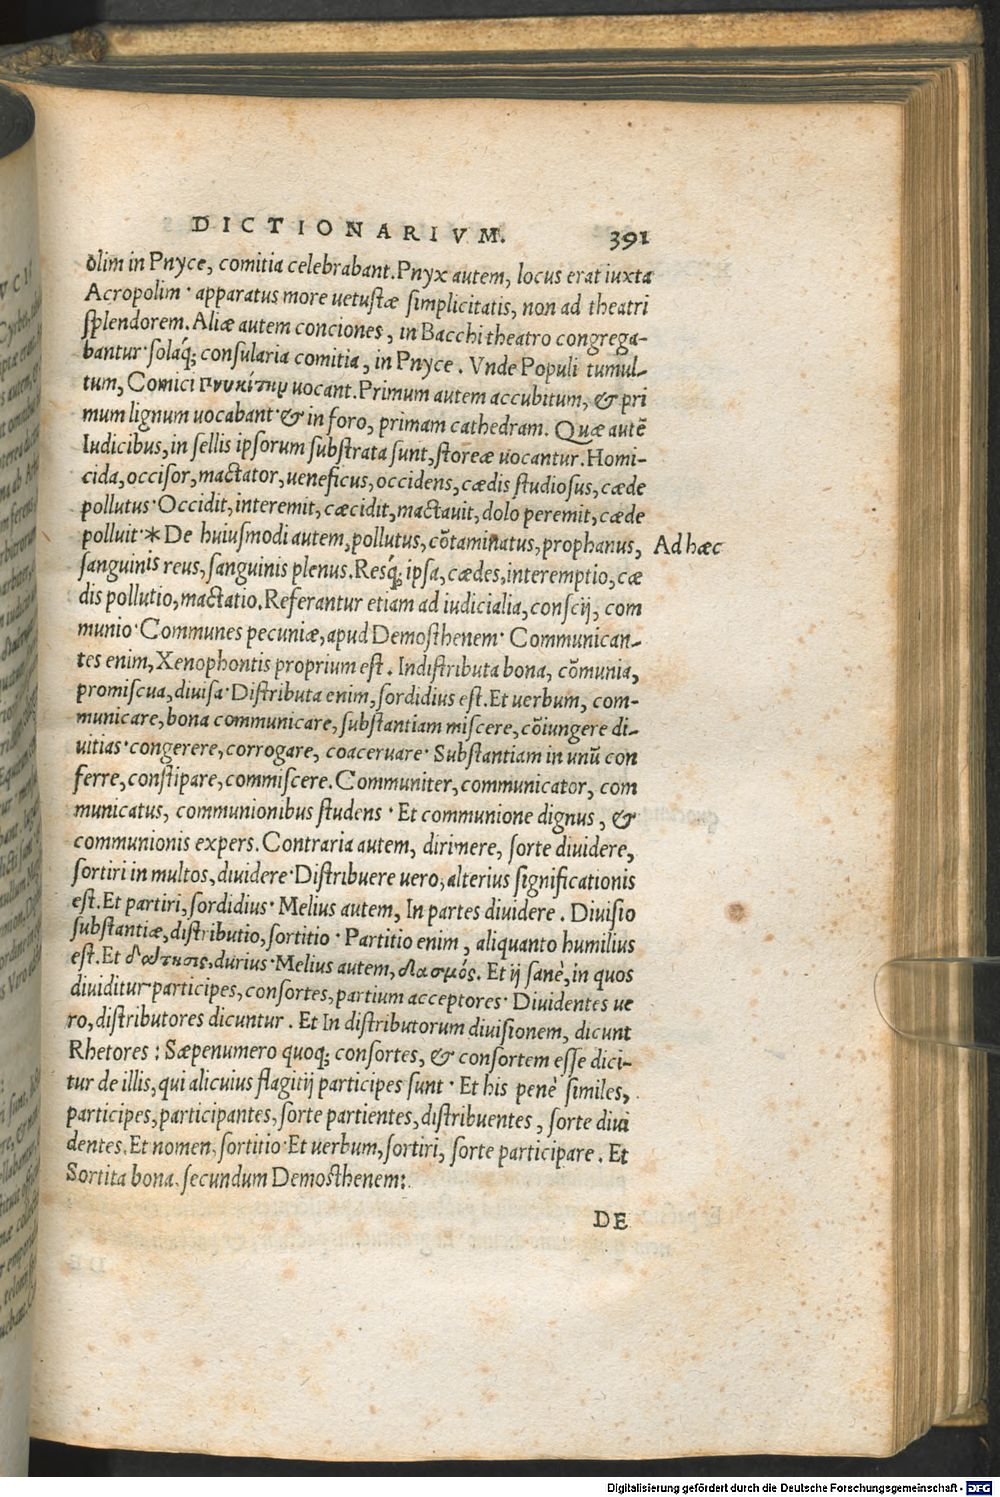 DICTIONARIVM. 391
olim in Pnyce, comitia celebrabant. Pnyx autem, locus erat iuxta
Acropolim· apparatus more uetustæ simplicitatis, non ad theatri
splendorem. Aliæ autem conciones, in Bacchi theatro congrega-
bantur· solaq́; consularia comitia, in Pnyce. Vnde Populi tumul-
tum, Comici πνυκίτην uocant. Primum autem accubitum, & pri
mum lignum uocabant· & in foro, primam cathedram. Quæ autē
Iudicibus, in sellis ipsorum substrata sunt, storeæ uocantur. Homi-
cida, occisor, mactator, ueneficus, occidens, cædis studiosus, cæde
pollutus· Occidit, interemit, cæcidit, mactauit, dolo peremit, cæde
polluit·* De huiusmodi autem, pollutus, cōtaminatus, prophanus, Ad hæc
sanguinis reus, sanguinis plenus. Resq́; ipsa, cædes, interemptio, cæ
dis pollutio, mactatio. Referantur etiam ad iudicialia, conscij, com
munio· Communes pecuniæ, apud Demosthenem· Communican-
tes enim, Xenophontis proprium est. Indistributa bona, cōmunia,
promiscua, diuisa· Distributa enim, sordidius est. Et uerbum, com-
municare, bona communicare, substantiam miscere, cōiungere di-
uitias· congerere, corrogare, coaceruare· Substantiam in unū con
ferre, constipare, commiscere. Communiter, communicator, com
municatus, communionibus studens· Et communione dignus, &
communionis expers. Contraria autem, dirimere, sorte diuidere,
sortiri in multos, diuidere· Distribuere uero, alterius significationis
est. Et partiri, sordidius· Melius autem, In partes diuidere. Diuisio
substantiæ, distributio, sortitio· Partitio enim, aliquanto humilius
est. Et durius· Melius autem, δασμός. Et ij sanè, in quos
diuiditur· participes, consortes, partium acceptores· Diuidentes ue
ro, distributores dicuntur. Et In distributorum diuisionem, dicunt
Rhetores: Sæpenumero quoq; consortes, & consortem esse dici-
tur de illis, qui alicuius flagitij participes sunt· Et his penè similes,
participes, participantes, sorte partientes, distribuentes, sorte diui
dentes. Et nomen, sortitio· Et uerbum, sortiri, sorte participare. Et
Sortita bona, secundum Demosthenem:
DE
Digitalisierung gefördert durch die Deutsche Forschungsgemeinschaft - DFG